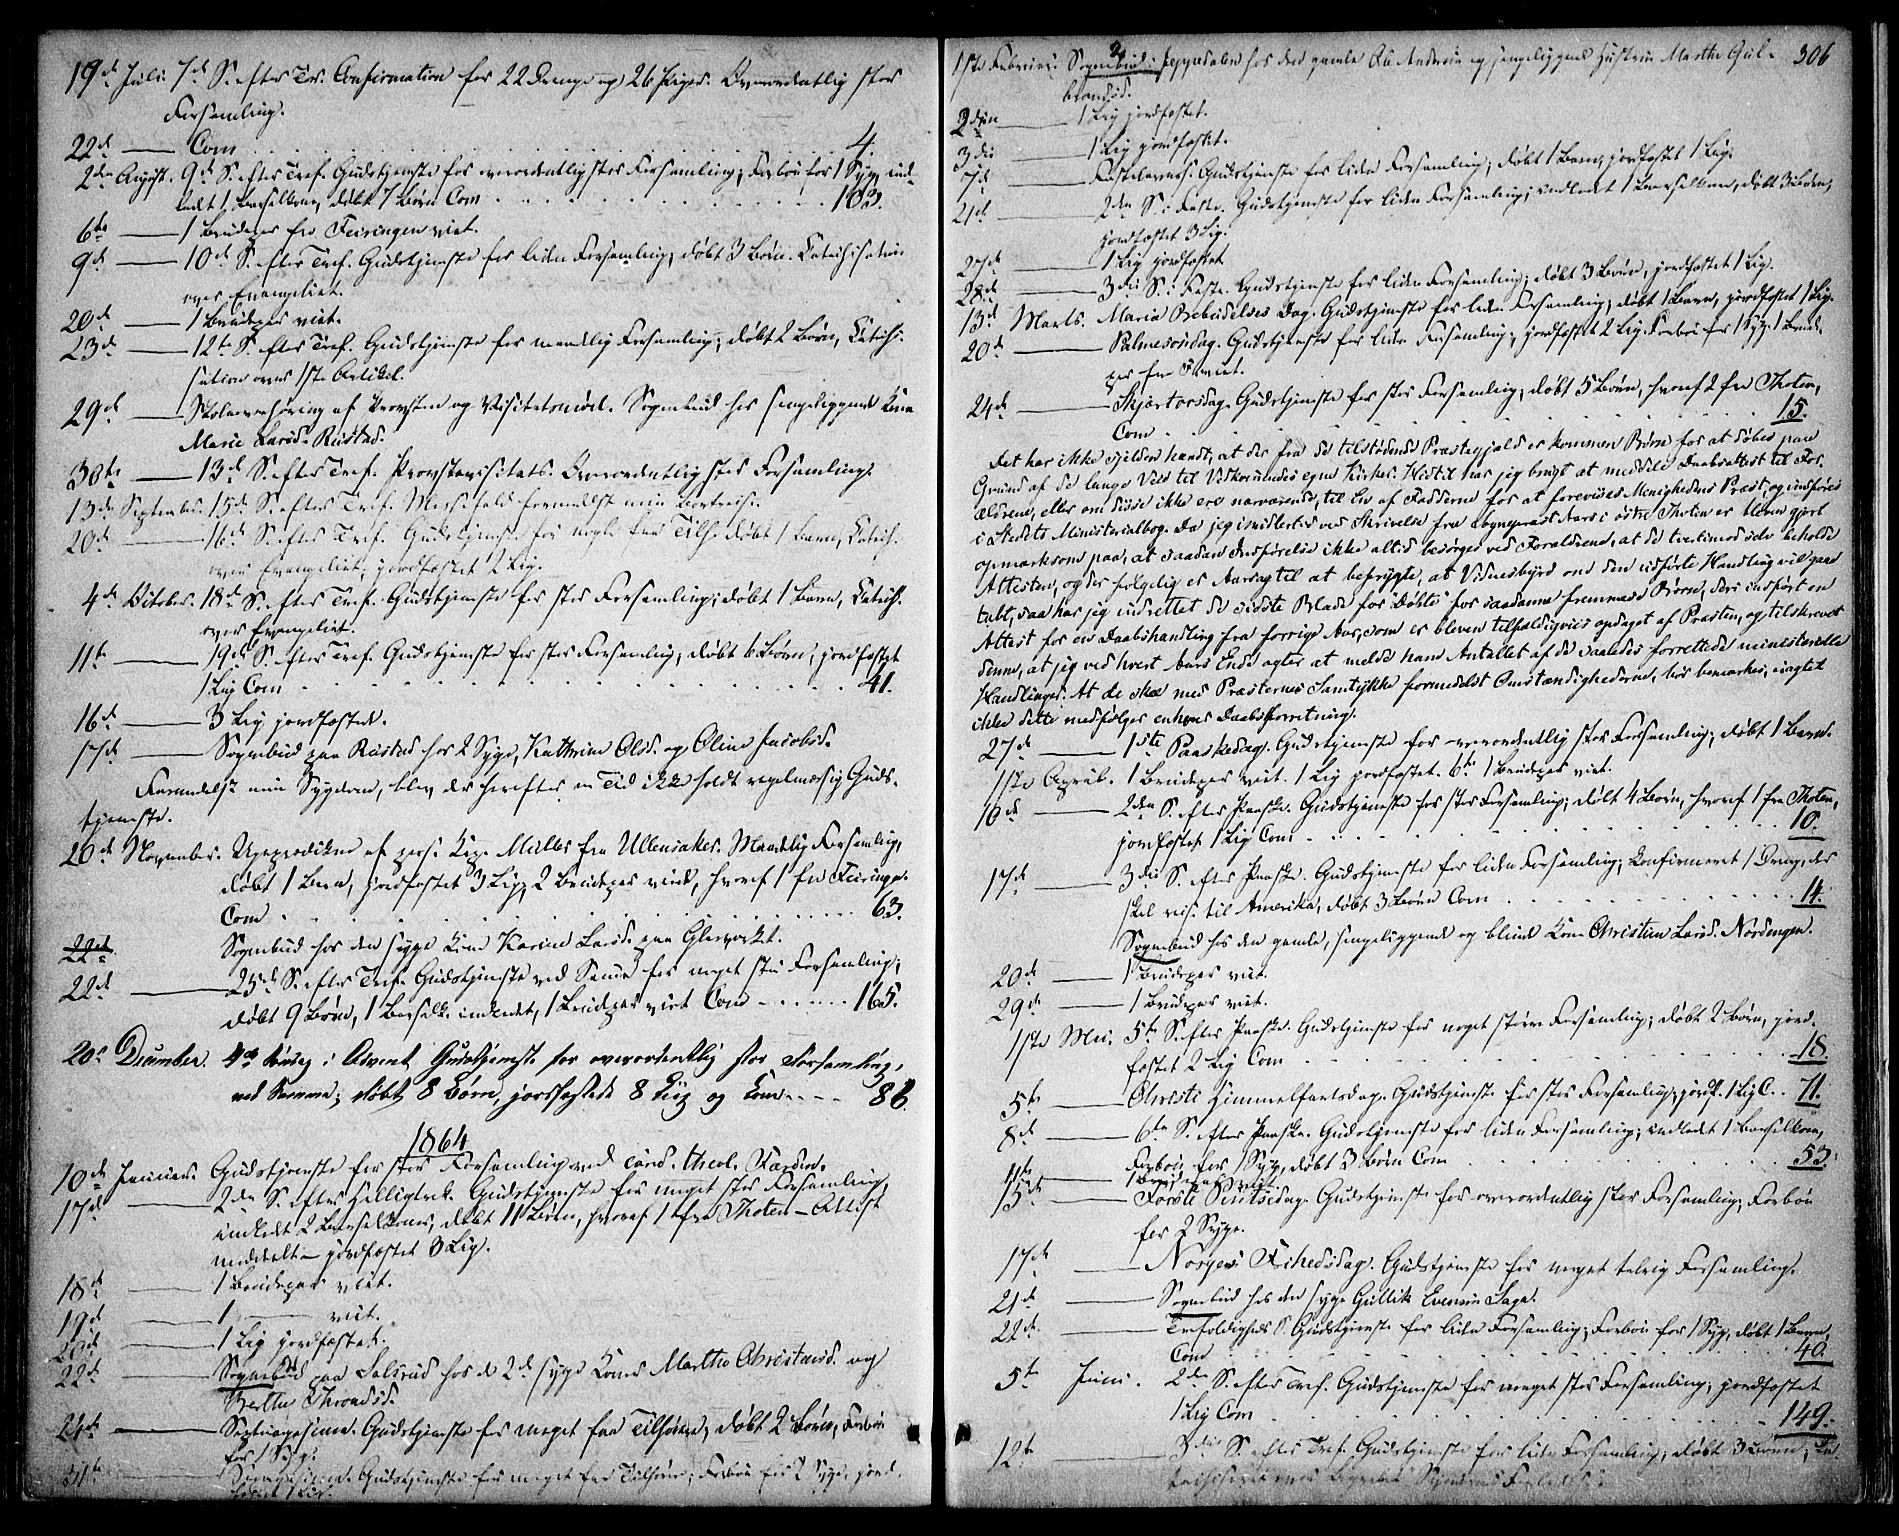 19de Juli. 7de S. efter Tr. Confirmation for 22 Drenge og 26 Piger. Overordentlig stor
Forsamling.
22de — Com . . . 4.
2den August. 9de S. efter Tref. Gudstjeneste for overordentlig stor Forsamling; Forbøn for 1 Syg, ind-
ledt 1 Barselkone, døbt 7 Børn Com . . . 103.
6te — 1 Brudepar fra Feiringen viet.
9de — 10de S. efter Tref. Gudstjeneste for liden Forsamling; døbt 3 Børn. Catechisation
over Evangeliet.
20de — 1 Brudepar viet.
23de — 12te S. efter Tref. Gudstjeneste for maadelig Forsamling; døbt 2 Børn, Catech-
isation over 1ste Artikel.
29de — Skoleoverhøring af Provsten og Visitatsmøde. Sognebud hos sengeliggende Kone
Marie Larsd. Rustad.
30te — 13de S. efter Tref. Provstevisitats. Overordentlig stor Forsamling.
13de September. 15de S. efter Tref. Messefald formedelst min Bortreise.
20de — 16de S. efter Tref. Gudstjeneste for nogle faa Tilh. døbt 1 Barn, Catech.
over Evangeliet, jordfæstet 2 Lig.
4de October. 18de S. efter Tref. Gudstjeneste for stor Forsamling; døbt 1 Barn, Catech.
over Evangeliet.
11te — 19de S. efter Tref. Gudstjeneste for stor Forsamling, døbt 6 Børn, jordfæstet
1 Lig Com . . . 41.
16de — 3 Lig jordfæstede.
17de — Sognebud paa Rustad hos 2 Syge, Kathrine Olsd. og Oline Jacobsd.
Formedelst min Sygdom, blev der herefter en Tid ikke holdt regelmæssig Guds-
tjeneste.
20de November. Ugeprædiken af pers. Kap. Müller fra Ullensaker. Maadelig Forsamling,
døbt 1 Barn, jordfæstet 3 Lig, 2 Brudepar viede, hvoraf 1 fra Feiringen.
Com . . . 63.
22de Sognebud hos den syge Kone Karine Larsd. paa Glasværket.
22de — 25de S. efter Tref. Gudstjeneste ved Samme for meget stor Forsamling;
døbt 9 Børn, 1 Barselk. indledet, 1 Brudepar viet Com . . . 165.
20de December. 4de Søndag i Advent Gudstjeneste for overordentlig stor Forsamling,
ved Samme; døbt 8 Børn, jordfæstede 8 Lig og Com . . . 86.
1864
10de Januar. Gudstjeneste for stor Forsamling ved cand. theol. Færden.
17de — 2den S. efter Helligtrek. Gudstjeneste for meget stor Forsamling,
indledt 2 Barselkoner, døbt 11 Børn, hvoraf 1 fra Thoten – Attest
meddeelt – jordfæstet 3 Lig.
18de — 1 Brudepar viet.
19de — 1 — viet.
20de — 1 Lig jordfæstet.
22de — Sognebud paa Julsrud hos de 2de syge Koner Marthe Christansd. og
Berthe Throndsd.
24de — Septuagesima. Gudstjeneste for meget faa Tilhørere, døbt 2 Børn, Forbøn
for 1 Syg.
31te — Sexagesima. Gudstjeneste for meget faa Tilhørere; Forbøn for 2 Syge, jord-
fæstet 1 Lig.
306
1ste Februar. Sognebud i Peppedalen hos den gamle Ole Andersen og sengeliggende Hustru Marthe Gul-
brandsd.
2den — 1 Lig jordfæstet.
3die — 1 Lig jordfæstet.
7de — Fastelavns. Gudstjeneste for liden Forsamling; døbt 1 Barn, jordfæstet 1 Lig.
21de — 2den S. i Faste. Gudstjeneste for liden Forsamling; indledt 1 Barselkone, døbt 3 Børn,
jordfæstet 3 Lig.
27de — 1 Lig jordfæstet.
28de — 3die S. i Faste. Gudstjeneste for liden Forsamling; døbt 3 Børn, jordfæstet 1 Lig.
13de Marts. Mariæ Bebudelses Dag. Gudstjeneste for liden Forsamling; døbt 1 Barn, jordfæstet 1 Lig.
20de — Palmesøndag. Gudstjeneste for liden Forsamling, jordfæstet 2 Lig. Forbøn for 1 Syg. 1 Brude-
par fra F. viet.
24de — Skjærtorsdag. Gudstjeneste for stor Forsamling; døbt 5 Børn, hvoraf 2 fra Thoten,
Com . . . 15.
Det har ikke sjelden hændt, at der fra de tilstødende Præstegjeld er kommen Børn for at døbes paa
Grund af den lange Vei til Vedkommendes egne Kirker. Hidtil har jeg brugt at meddele Daabsattest til For-
ældrene, eller om disse ikke ere nærværende, til En af Fadderne for at forevises Menighedens Præst, og indføres
i Stedets Ministerialbog. Da jeg imidlertid ved Skrivelse fra Sognepræst Aars i østre Thoten er bleven gjort
opmærksom paa, at saadan Indførelse ikke altid besørges ved Forældrene, at de tvertimod selv beholde
Attesten, og der følgelig er Aarsag til at befrygte, at Vidnesbyrd om den udførte Handling vil gaae
tabt, saa har jeg indrettet de sidste Blade for "Døbte" for saadanne fremmede Børn, deri indført en
Attest for en Daabshandling fra forrige Aar, som er bleven tilfældigviis opdaget af Præsten, og tilskrevet
denne, at jeg ved hvert Aars Ende agter at melde ham Antallet af de saaledes forrettede ministerielle
Handlinger. At de skee med Præsternes Samtykke formedelst Omstændighederne, bør bemærkes, uagtet
ikke dette medfølger enhver Daabsforretning.
27de — 1ste Paaskedag. Gudstjeneste for overordentlig stor Forsamling; døbt 1 Barn.
1ste April. 1 Brudepar viet. 1 Lig jordfæstet. 6te 1 Brudepar viet.
10de — 2den S. efter Paaske. Gudstjeneste for stor Forsamling; døbt 4 Børn, hvoraf 1 fra Thoten,
jordfæstet 1 Lig Com . . . 10.
17de — 3die S. efter Paaske. Gudstjeneste for liden Forsamling; Konfirmeret 1 Dreng, der
skal reise til Amerika, døbt 3 Børn Com . . . 14.
Sognebud hos den gamle, sengeliggende og blinde Kone Christine Larsd. Nordengen.
20de — 1 Brudepar viet.
29de — 1 Brudepar viet.
1ste Mai. 5te S. efter Paaske. Gudstjeneste for noget større Forsamling; døbt 2 Børn, jord-
fæstet 2 Lig Com . . . 18.
5te — Christi Himmelfartsdag. Gudstjeneste for stor Forsamling; jordf. 1 Lig C. . 71.
8de — 6te S. efter Paaske. Gudstjeneste for liden Forsamling; indledt 1 Barselkone,
Forbøn for 1 Syg, døbt 3 Børn Com . . . 53.
11te — 1 Brudepar viet.
15de — Første Pintsedag. Gudstjeneste for overordentlig stor Forsamling; Forbøn
for 2 Syge.
17de — Norges Frihedsdag. Gudstjeneste for meget talrig Forsamling.
21de — Sognebud hos den syge Gullik Evensen Sagen.
22de — Trefoldigheds S. Gudstjeneste for liden Forsamling; Forbøn for 1 Syg, døbt 1 Barn,
Com . . . 40.
5te Juni. 2den S. efter Tref. Gudstjeneste for meget stor Forsamling; jordfæstet
1 Lig Com . . . 149.
12te — 3die S. efter Tref. Gudstjeneste for liden Forsamling; døbt 3 Børn; Cat-
echiseret over Begrebet Syndernes Forladelse.